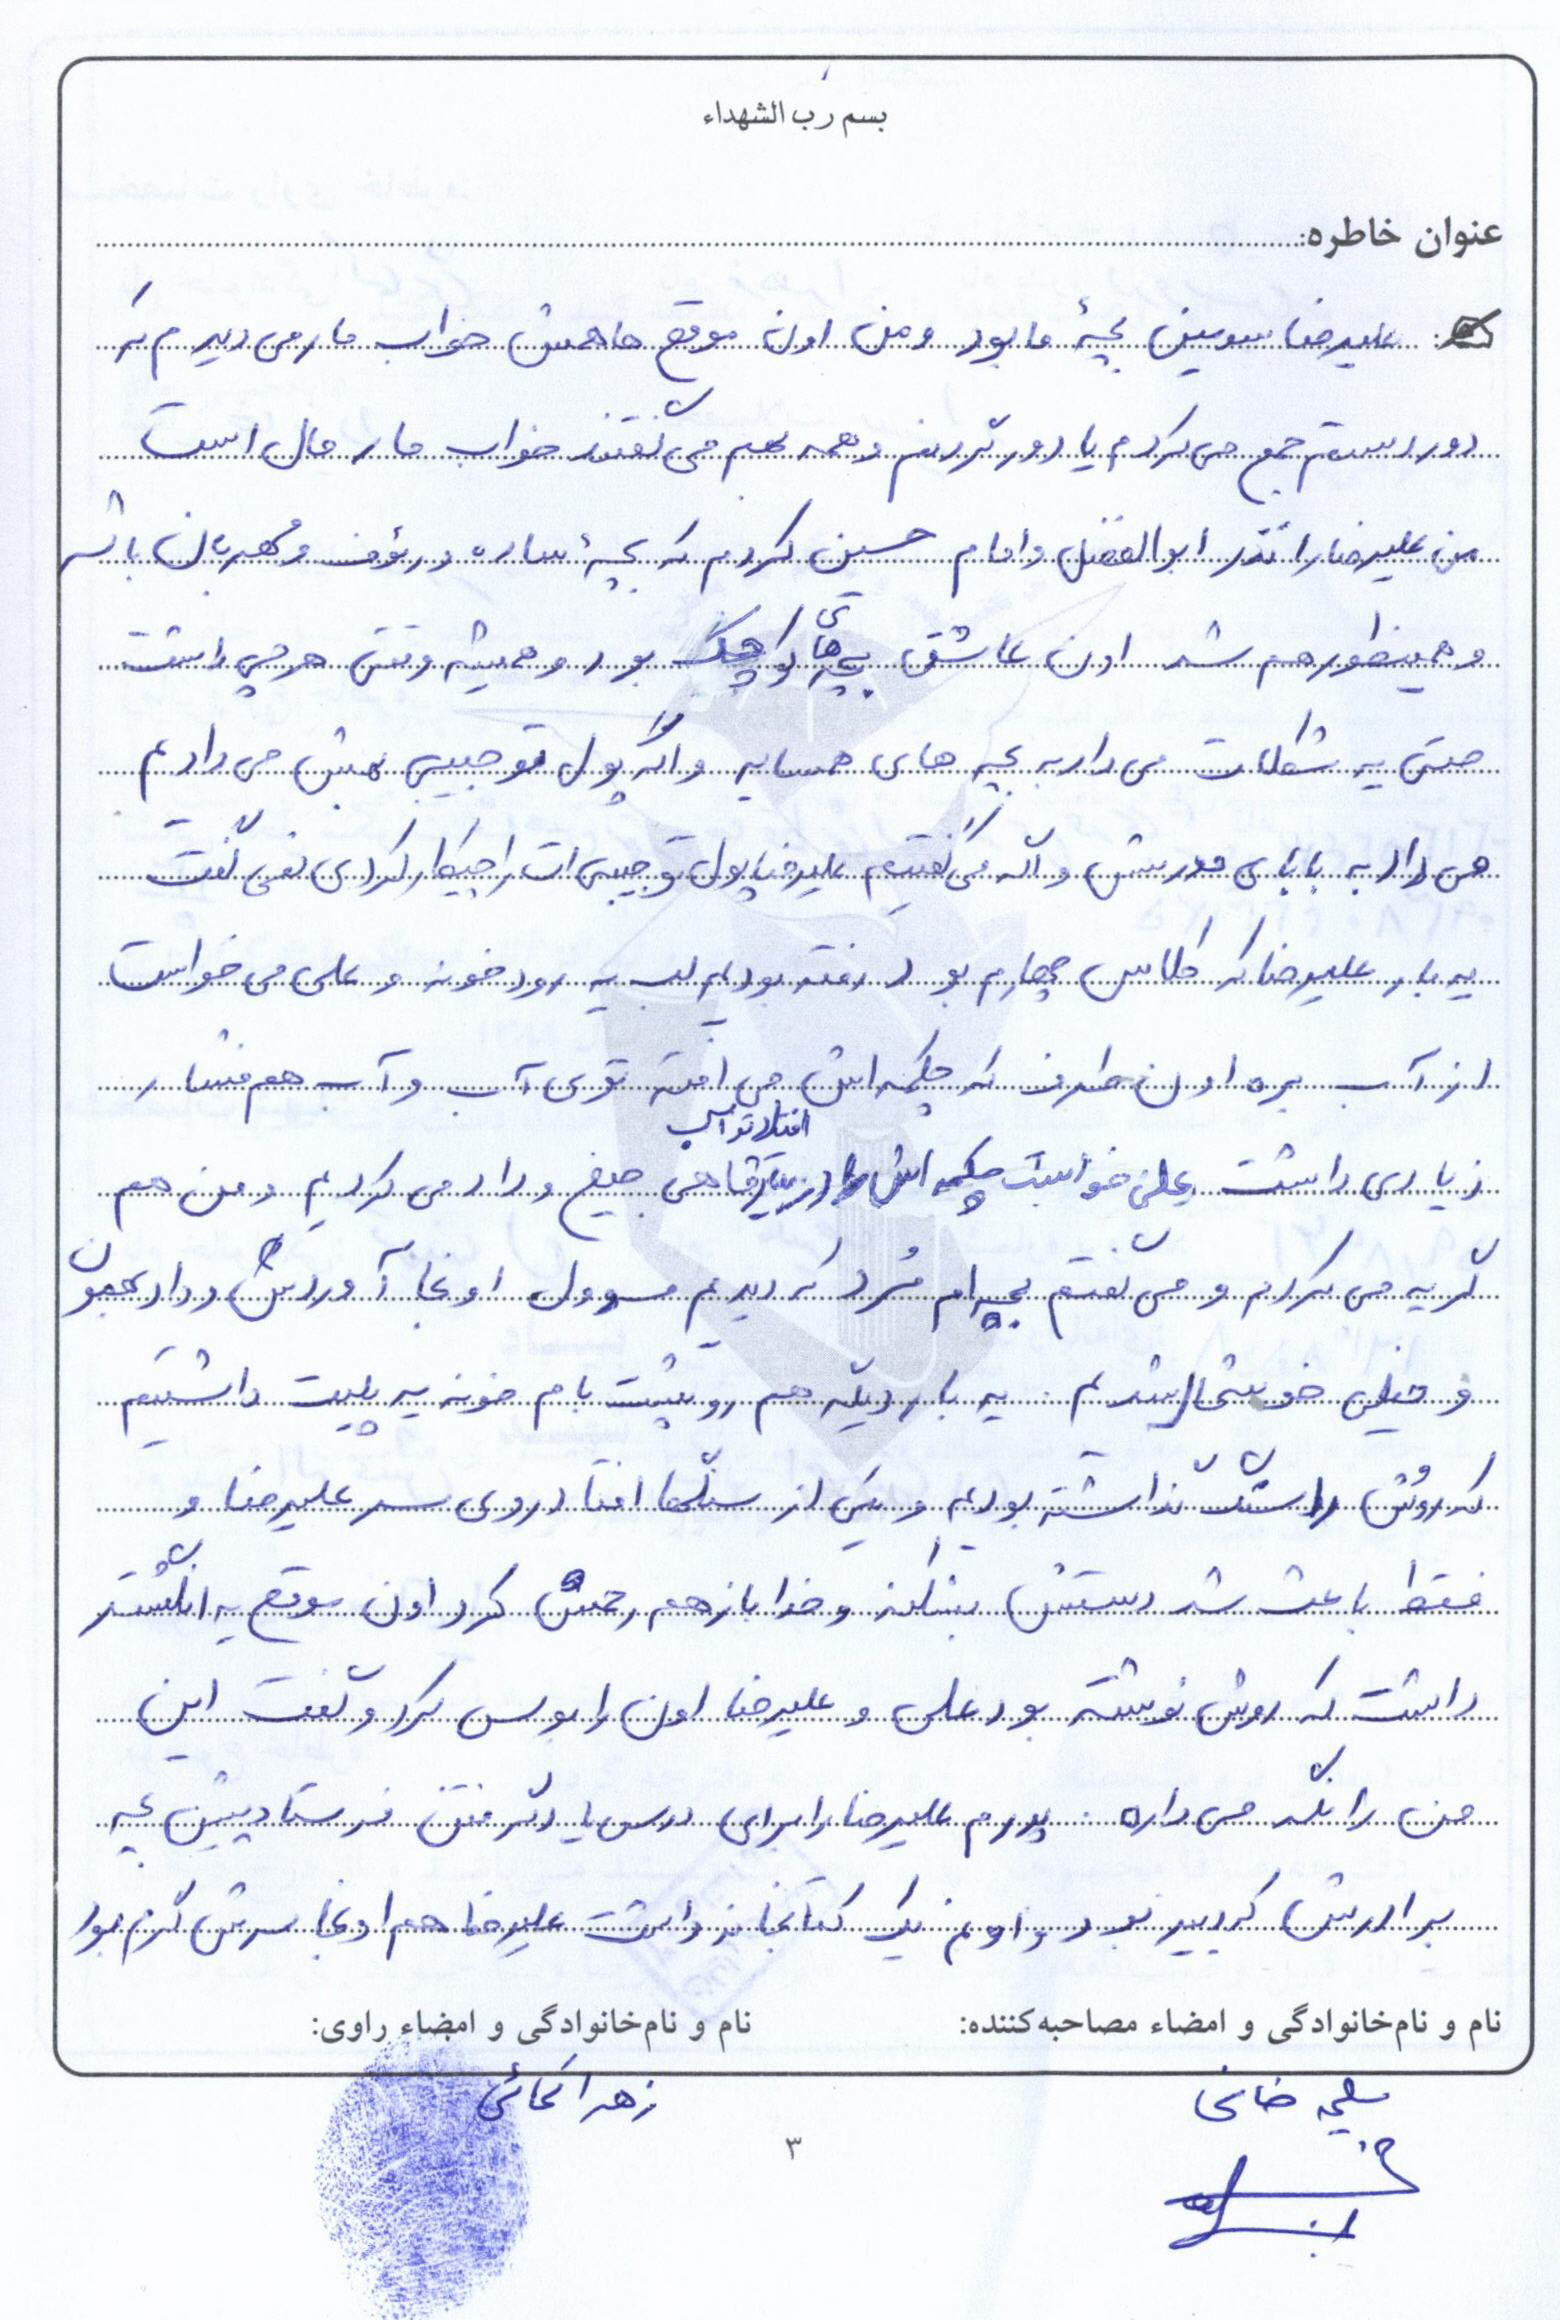 بسم رب الشهداء
عنوان خاطره:
علیرضا سومین بچهٔ ما بود و من اون موقع ها همش خواب مار می دیدم که
دور دستم جمع می کردم یا دور گردنم و همه بهم می گفتند خواب مار مال است
من علیرضا را نذر ابوالفضل و امام حسین کردم که بچهٔ ساده و رئوف و مهربان باشه
و همینطور هم شد اون عاشق بچه های کوچک بود و همیشه وقتی هرچی داشت
حتی یه شکلات می داد به بچه های همسایه و اگه پول تو جیبی بهش می دادیم
می داد به بابای مدرسش و اگه می گفتیم علیرضا پول تو جیبی ات را چیکار کردی نمی گفت
یه بار علیرضا که کلاس چهارم بود رفته بودیم لب یه رودخونه و علی می خواست
از آب بره اون طرف که چکمه اش می افته توی آب و آب هم فشار
زیادی داشت علی خواست چکمه اش را در بیاره افتاد تو آب ما هی جیغ و داد می کردیم و من هم
گریه می کردم و می گفتم بچه ام مُرد که دیدیم مسوول اونجا آوردش و داد بهمون
و خیلی خوشحال شدیم. یه بار دیگه هم رو پشت بام خونه یه پلیت داشتیم
که روش سنگ گذاشته بودیم و یکی از سنگها افتاد روی سر علیرضا و
فقط باعث شد دستش بشکنه و خدا باز هم رحمش کرد اون موقع یه انگشتر
داشت که روش نوشته بود علی و علیرضا اون را بوس کرد و گفت این
من را نگه می داره. پدرم علیرضا را برای درس یاد گرفتن فرستاد پیش بچه
برادرش که دبیر بود و اونم یک کتابخانه داشت علیرضا هم اونجا سرش گرم بود
نام و نام‌خانوادگی و امضاء مصاحبه‌کننده: نام و نام‌خانوادگی و امضاء راوی:
سلیمه خانی زهرا
۳